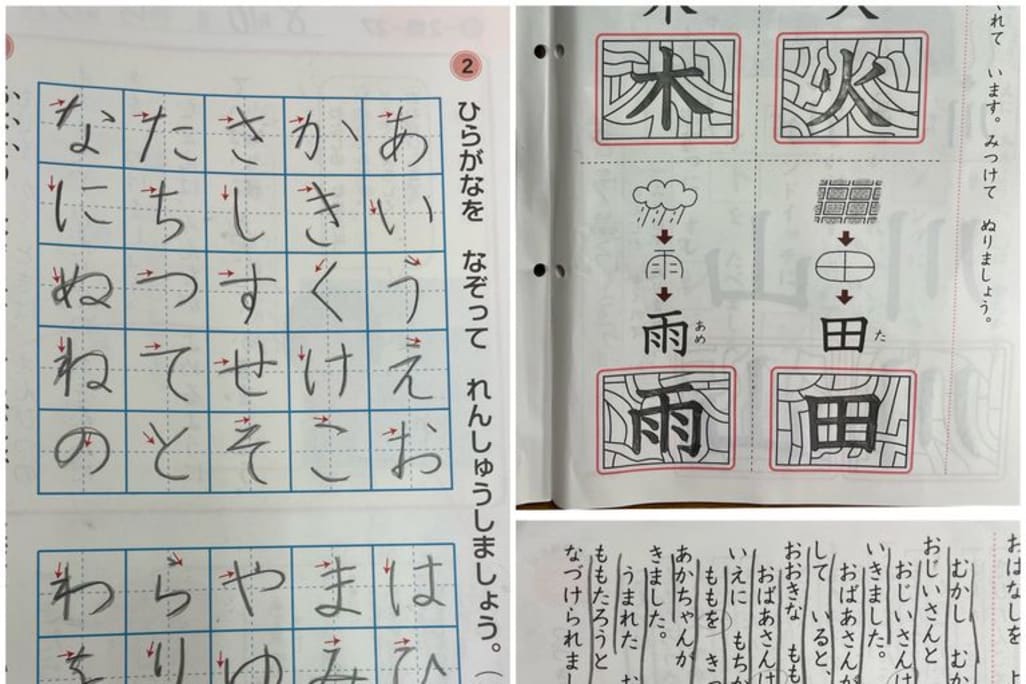 2
ひらがなを なぞって れんしゅうしましょう。(
あいうえお
かきくけこ
さしすせそ
たちつてと
なにぬねの
はひ
まみ
やゆ
らり
わを
れて います。みつけて ぬりましょう。
火
田
た
田
木
雨
あめ
雨
おはなしを よ
むかし むか
おじいさんと
おじいさんは
いきました。
おばあさんが
して いると、
おおきな もも
おばあさんは
いえに もちか
ももを きっ
あかちゃんが
きました。
うまれた
ももたろうと
なづけられまし